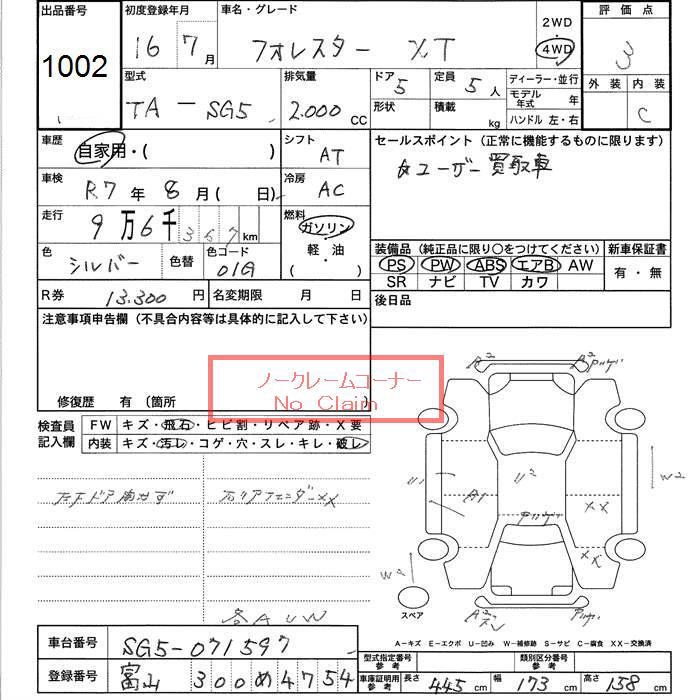 出品番号
1002
初度登録年月
16 7月
車名・グレード
フォレスター XT
2WD
4WD
評価点
3
外装 内装
C
型式
TA-SG5
排気量
2.000 CC
ドア 5
形状
定員 5人
積載 kg
ディーラー・並行
モデル年式 年
ハンドル 左・右
車歴
自家用・( )
シフト
AT
セールスポイント (正常に機能するものに限ります)
ユーザー買取車
車検
R7年 8月( 日)
冷房
AC
走行
9万6千367km
燃料
ガソリン
・軽・油
( )
色
シルバー
色替
色コード
01G
装備品 (純正品に限り○をつけてください)
PS PW ABS エアB AW
SR ナビ TV カワ
新車保証書
有・無
R券 13.300円
名変期限 月 日
後日品
注意事項申告欄 (不具合内容等は具体的に記入して下さい)
ノークレームコーナー
No Claim
修復歴 有 (箇所 )
検査員記入欄
FW キズ・飛石・ヒビ割・リペア跡・X要
内装 キズ・汚レ・コゲ・穴・スレ・キレ・破レ
A2
A2 アツゲ
U1
A1
U2
W2
XX
アツゲ
XX
スペア
各AUW
A-キズ E-エクボ U-凹み W-補修跡 S-サビ C-腐食 XX-交換済
車台番号 SG5-071597
登録番号 富山 300 め 4754
型式指定番号 参考
類別区分番号 参考
車庫証明用参考 長さ 445cm 幅 173cm 高さ 158cm